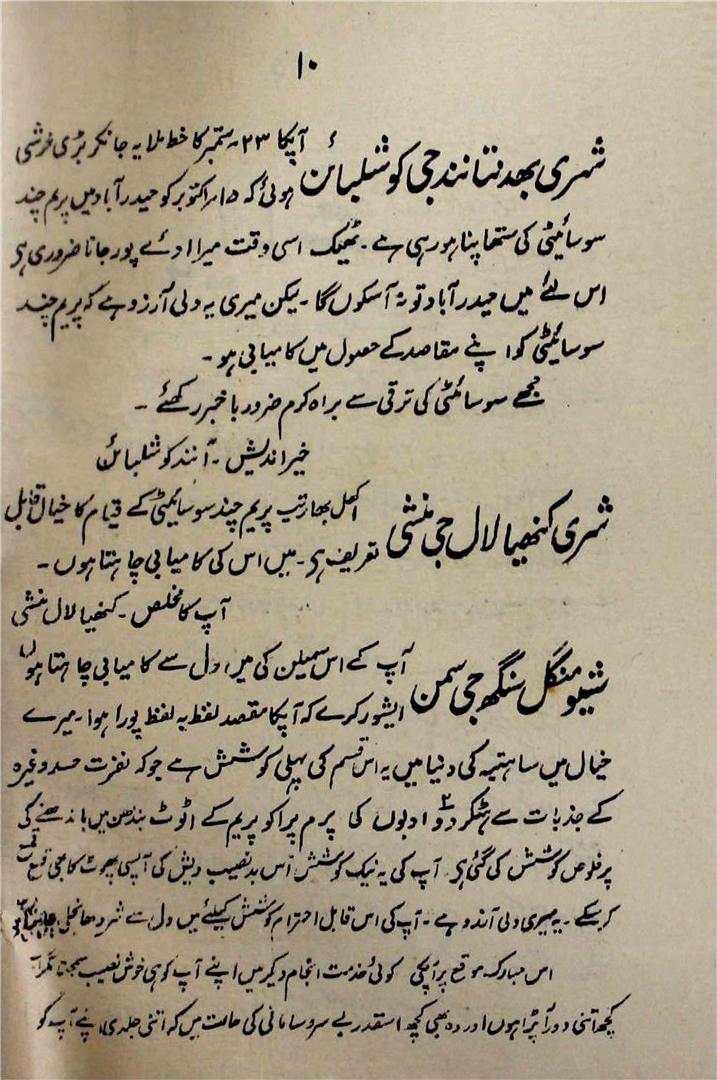 ۱۰
شہری بھدنتا نند جی کوشلیائن آپکا ۲۳؍ستمبر کا خط ملا یہ جانکر بڑی خوشی
ہوئی کہ ۱۵؍اکتوبر کو حیدرآباد میں پریم چند
سوسائیٹی کی ستھاپنا ہو رہی ہے ۔ ٹھیک اسی وقت میرا اودے پور جانا ضروری ہی
اس لئے میں حیدرآباد تو نہ آسکوں گا ۔ لیکن میری یہ دلی آرزو ہے کہ پریم چند
سوسائیٹی کو اپنے مقاصد کے حصول میں کامیابی ہو ۔
مجھے سوسائیٹی کی ترقی سے براہ کرم ضرور باخبر رکھئے ۔
خیراندیش ۔ آنند کوشلیائن
شری کنھیا لال جی منشی اکھل بھارتیہ پریم چند سوسائیٹی کے قیام کا خیال قابل
تعریف ہی ۔ میں اس کی کامیابی چاہتا ہوں ۔
آپ کا مخلص ۔ کنھیا لال منشی
شیو منگل سنگھ جی سمن آپ کے اس سمیلن کی میں دل سے کامیابی چاہتا ہوں
ایشور کرے کہ آپکا مقصد لفظ بہ لفظ پورا ہو ۔ میرے
خیال میں ساہتیہ کی دنیا میں یہ اس قسم کی پہلی کوشش ہے جو کہ نفرت حسد وغیرہ
کے جذبات سے ہٹکر دو ادبوں کی پرم پرا کو پریم کے اٹوٹ بندھن میں باندھنے کی
پر خلوص کوشش کی گئی ہی آپ کی یہ نیک کوشش اس بدنصیب دیش کی آپسی پھوٹ کا بھی قلع قمع
کر سکے ۔ یہ میری دلی آرزو ہے ۔ آپ کی اس قابل احترام کوشش کیلئے میں دل سے شردھانجلی
اس مبارک موقع پر آپکی کوئی خدمت انجام دیکر میں اپنے آپ کو ہی خوش نصیب سمجھتا مگر
کچھ اتنی دور آپڑا ہوں اور وہ بھی کچھ اسقدر بے سروسامانی کی حالت میں کہ اتنی جلدی اپنے آپ کو